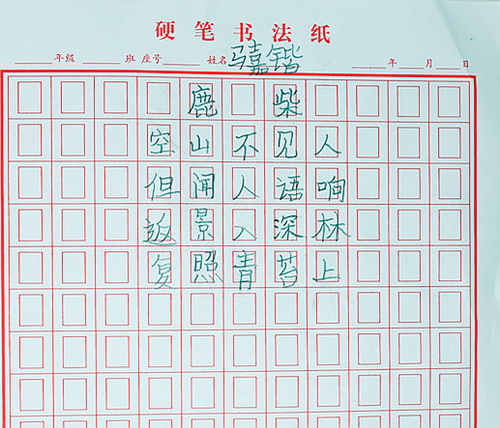 硬笔书法纸
年级 班 座号 姓名 马嘉锴 年 月 日
鹿柴
空山不见人
但闻人语响
返景入深林
复照青苔上